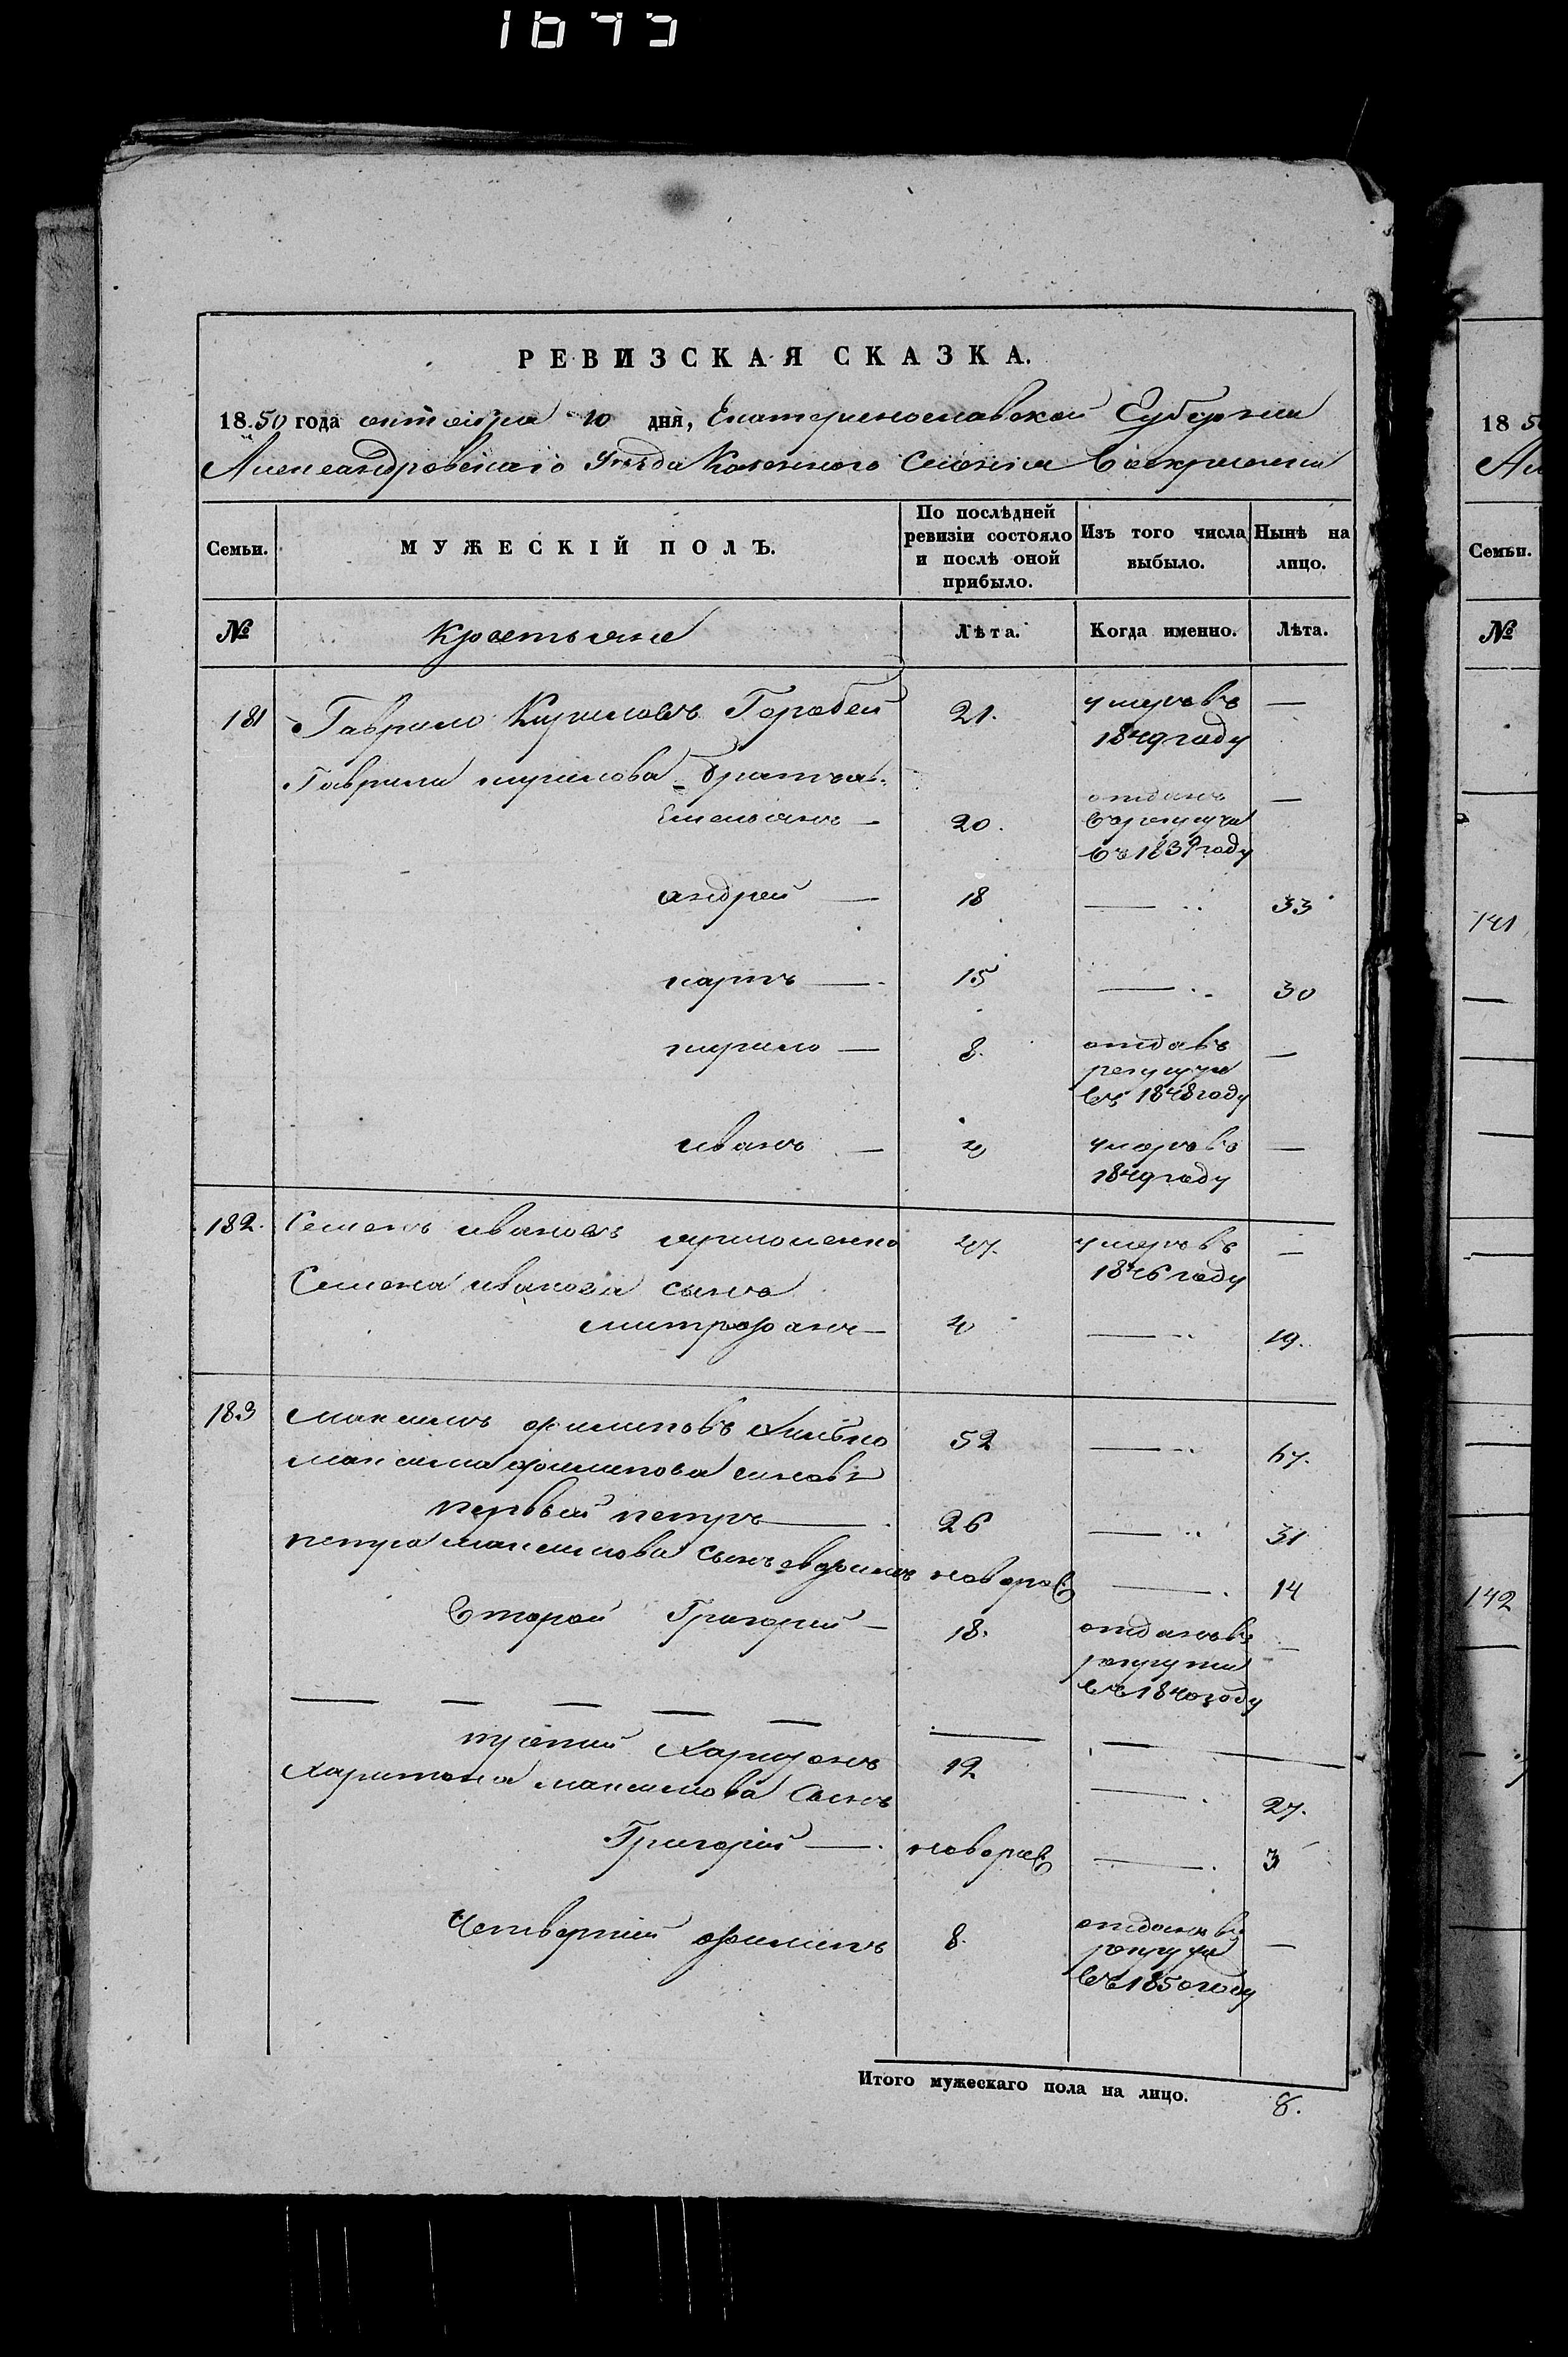 1843
РЕВИЗСКАЯ СКАЗКА.
18.50 года октября 10 дня, Екатеринославской Губернии
Александровскаго Уезда Казенного Селения Воскресенки
Семьи.
МУЖЕСКІЙ ПОЛЪ.
По послѣдней ревизіи состояло и послѣ оной прибыло.
Изъ того числа выбыло.
Нынѣ на лицо.
№ Крестьяне Лѣта. Когда именно. Лѣта.
181 Гаврило Кириловъ Горобей 21. умеръ въ —
1849 году
Гаврила кирилова братья
Емельянъ — 20. отданъ —
в рекруты
въ 1839 году
андрей — 18 — 33
карпъ — 15 — 30
кирило — 8. отда въ —
рекруты
въ 1848 году
иванъ — умеръ въ —
1849 году
182. Семенъ ивановъ 47. умеръ въ —
1846 году
Семена иванова сынъ
митрофанъ — 4 — 19.
183 максимъ филиповъ 52 — 67.
максима филипова
первый петръ — 26 — 31
петра максимова сынъ новорож — 14
Второй Григорий — 18. отданъ въ —
рекруты
въ 1840 году
третий Харитонъ 12 — 27.
Харитона максимова Сынъ
Григорий — новорож — 3
Четвертий филипъ 8. отданъ въ —
рекруты
въ 1850 году
Итого мужескаго пола на лицо. 8.
18 5
Ал
Семьи.
№
141
142